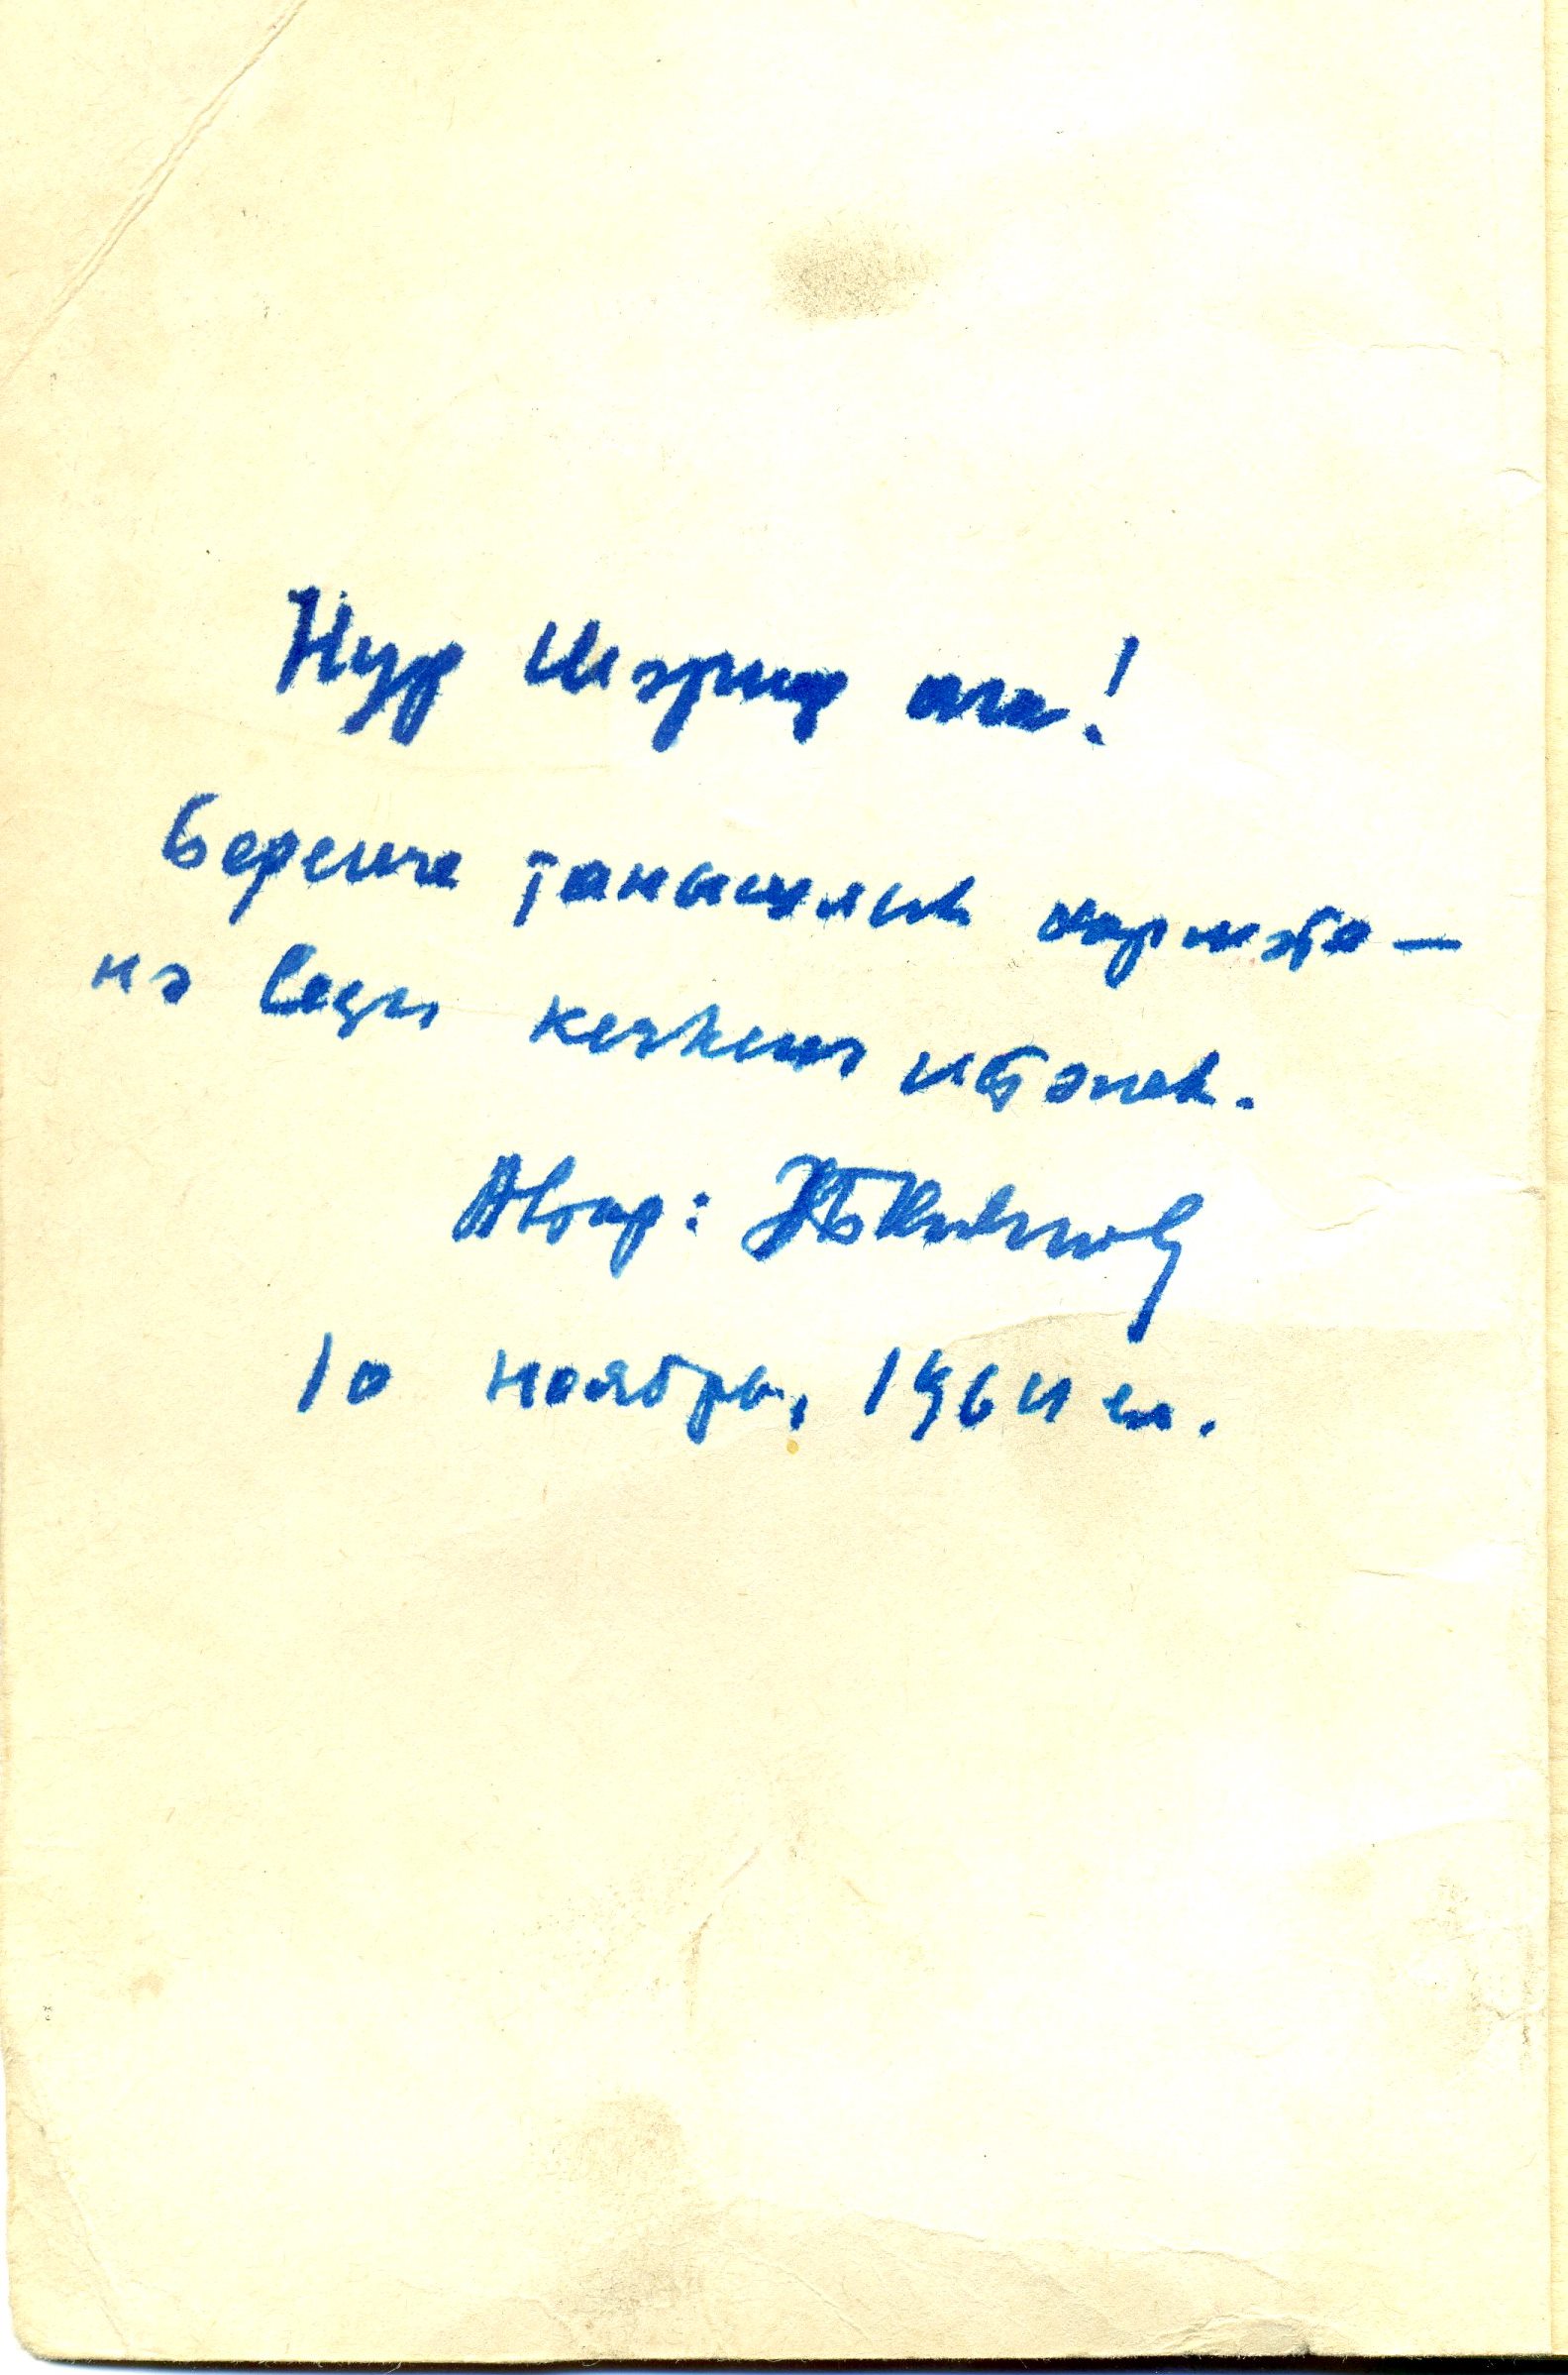 Нур Шәриф ага!
Беренче танышлык хөрмәте-
нә Сезгә кечкенә истәлек.
Автор:
10 ноябрь, 1964 ел.